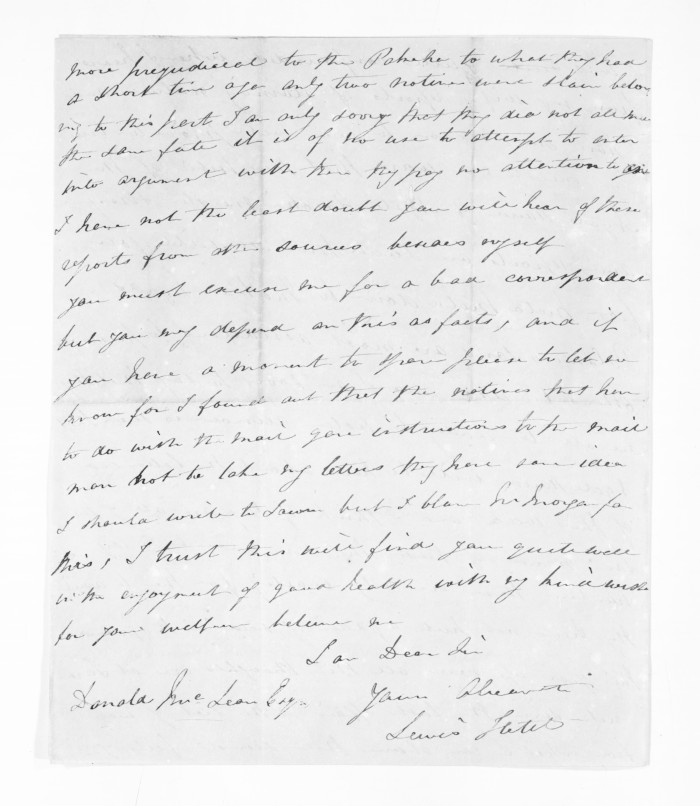 more prejudicial to the Pakeha to what they had
a short time ago only two natives were slain belong
ing to this part I am only sorry that they did not all meet
the same fate it is of no use to attempt to enter
into argument with them they pay no attention to
I have not the least doubt you will hear of these
reports from other sources besides myself
you must excuse me for a bad correspondent
but you may depend on this as facts, and if
you have a moment to spare please to let me
know for I found out that the natives that have
to do with the mail gave instructions to the mail
man not to take my letters they have some idea
I should write to but I blame Mr Morgan for
this, I trust this will find you quite well
in the enjoyment of good health with my kind wishes
for your welfare believe me
I am Dear Sir
Donald McLean Esqr Yours
Lewis